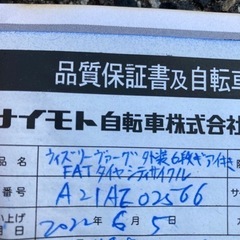 品質保証書及自転車
サイモト自転車株式会社
品名 ウィズリーヴァーグ 外装6段ギア付き
FATタイヤシティサイクル
番号 A21AE02566
い上げ 2022年6月5日